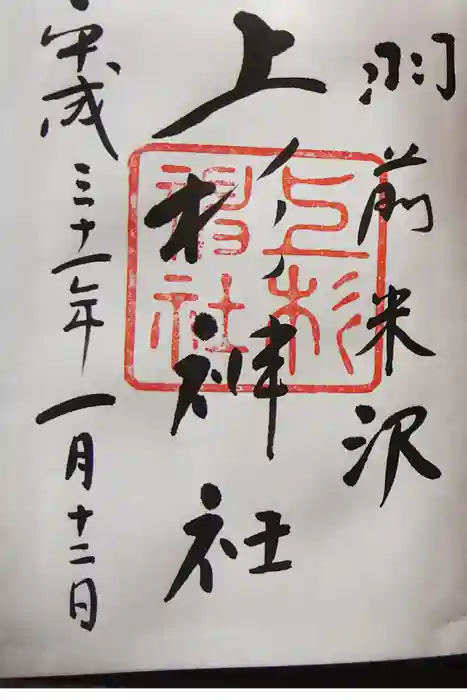 羽前米沢
上杉神社
上杉
神社
平成三十一年一月十二日